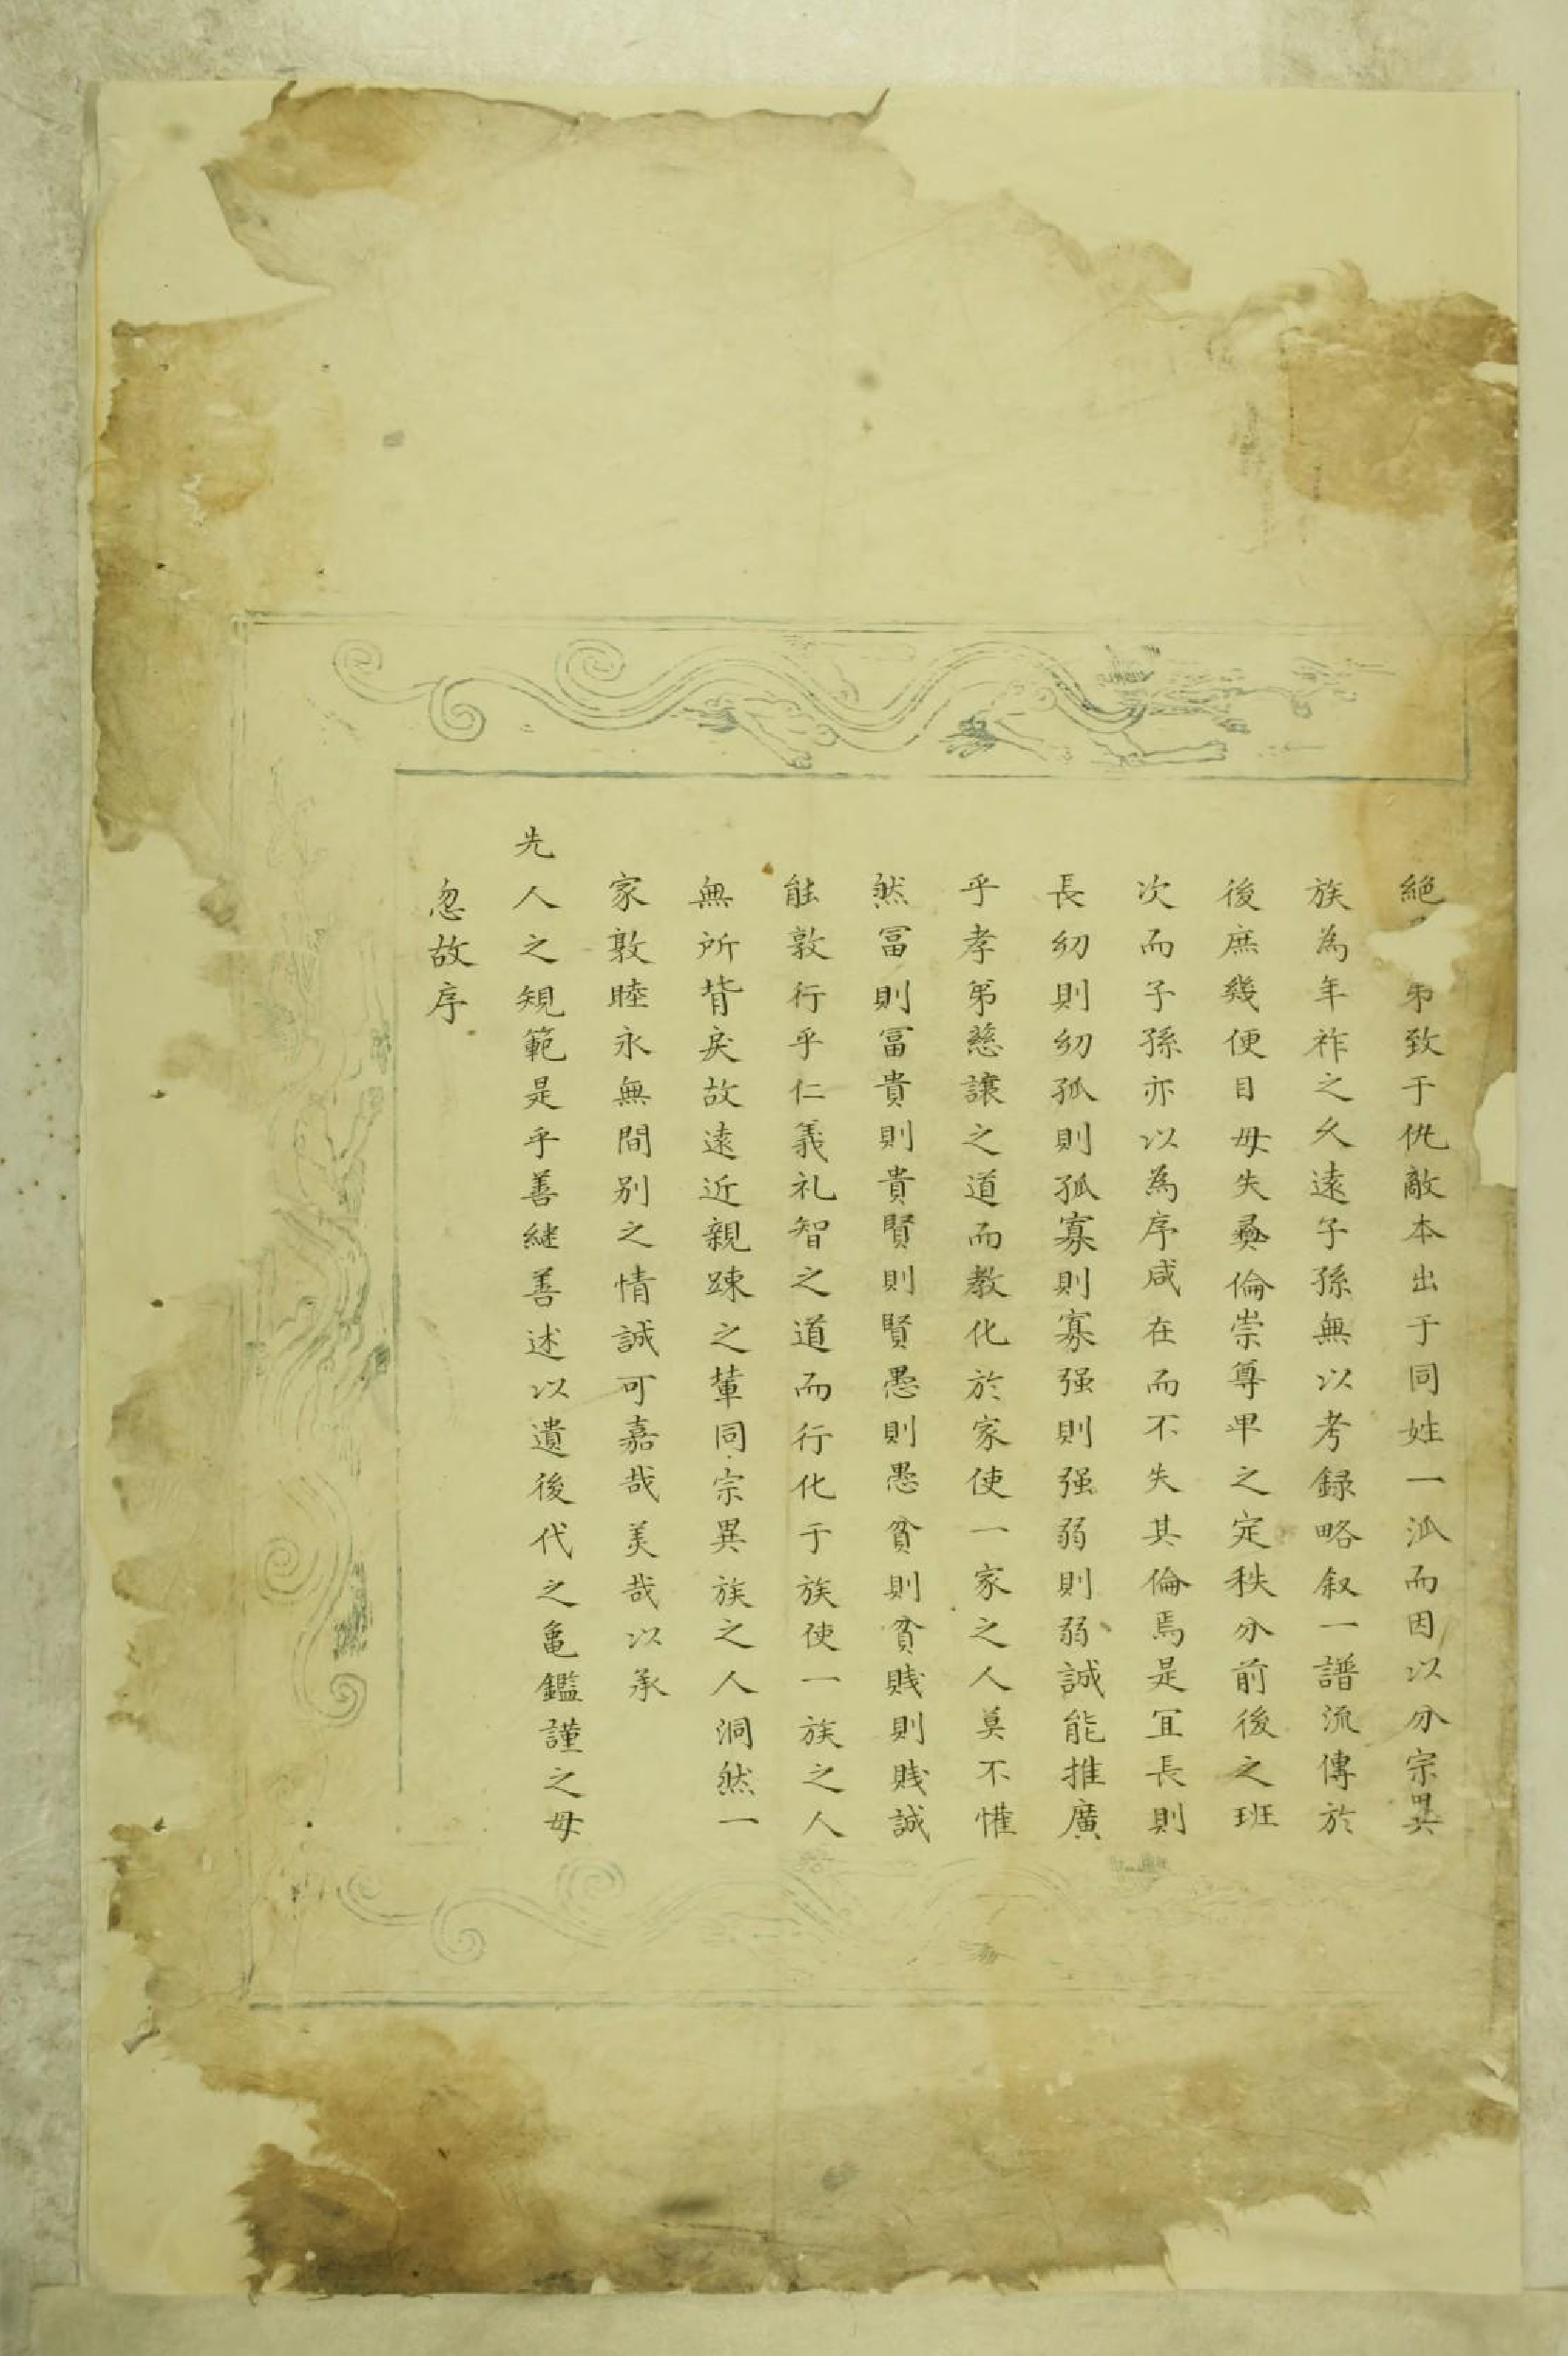 絕弟致于仇敵本出于同姓一派而因以分宗異
族為年祚之久遠子孫無以考録略叙一譜流傳於
後庶幾便目毋失彞倫崇尊卑之定秩分前後之班
次而子孫亦以為序咸在而不失其倫焉是冝長則
長幼則幼孤則孤寡則寡强則强弱則弱誠能推廣
乎孝弟慈讓之道而教化於家使一家之人莫不懽
然冨則冨貴則貴賢則賢愚則愚貧則貧賤則賤誠
能敦行乎仁義礼智之道而行化于族使一族之人
無所背戾故遠近親踈之輩同宗異族之人洞然一
家敦睦永無間別之情誠可嘉哉美哉以承
先人之規範是乎善継善述以遺後代之亀鑑謹之毋
忽故序